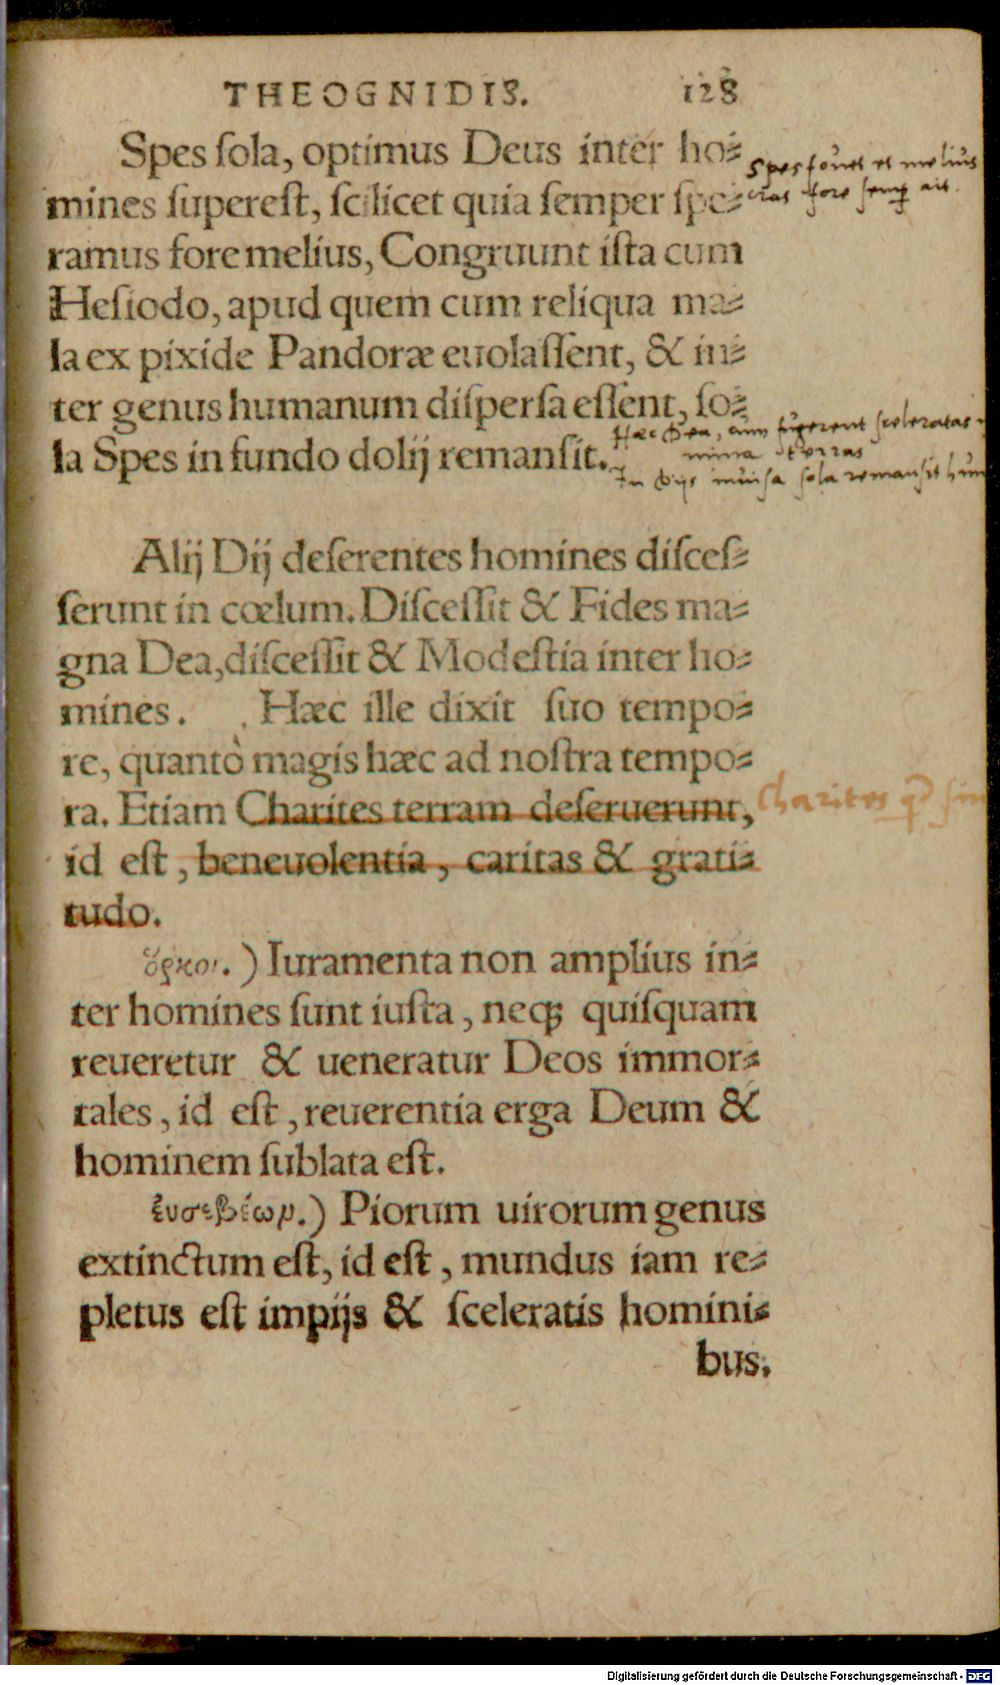 THEOGNIDIS. 128
Spes ſola, optimus Deus inter ho⸗
mines ſupereſt, ſcilicet quia ſemper ſpe⸗
ramus fore melius, Congruunt iſta cum
Heſiodo, apud quem cum reliqua ma⸗
la ex pixide Pandoræ euolaſſent, & in⸗
ter genus humanum diſperſa eſſent, ſo⸗
la Spes in fundo dolij remanſit.
Spes fouet et melius
cras fore semp ait.
Hæc Dea, cum fugerent sceleratas
numina terras
In Dijs inuisa sola remansit hum
Alij Dij deſerentes homines diſceſ⸗
ſerunt in cœlum. Diſceſſit & Fides ma⸗
gna Dea, diſceſſit & Modeſtia inter ho⸗
mines. Hæc ille dixit ſuo tempo⸗
re, quantò magis hæc ad noſtra tempo⸗
ra. Etiam Charites terram deſeruerunt,
Charites
id eſt, beneuolentia, caritas & grati⸗
tudo.
ὅρκοι.) Iuramenta non amplius in⸗
ter homines ſunt iuſta, neq; quiſquam
reueretur & ueneratur Deos immor⸗
tales, id eſt, reuerentia erga Deum &
hominem ſublata eſt.
ἐυσεβέων.) Piorum uirorum genus
extinctum eſt, id eſt, mundus iam re⸗
pletus eſt impijs & ſceleratis homini⸗
bus.
Digitalisierung gefördert durch die Deutsche Forschungsgemeinschaft - DFG